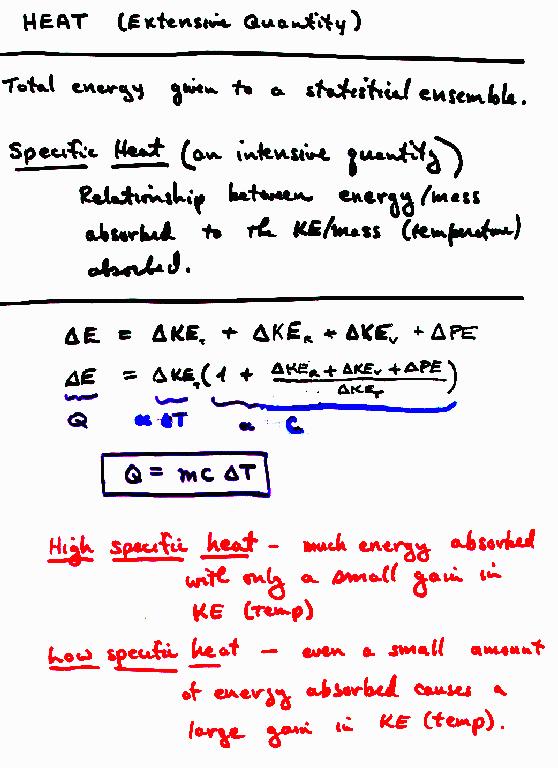 HEAT (Extensive Quantity)
Total energy given to a statistical ensemble.
Specific Heat (an intensive quantity)
Relationship between energy/mass
absorbed to the KE/mass (temperature)
absorbed.
ΔE = ΔKE_T + ΔKE_R + ΔKE_V + ΔPE
ΔE = ΔKE_T (1 + (ΔKE_R + ΔKE_V + ΔPE)/ΔKE_T)
Q ∝ ΔT ∝ C
Q = mc ΔT
High specific heat - much energy absorbed
with only a small gain in
KE (temp)
Low specific heat - even a small amount
of energy absorbed causes a
large gain in KE (temp).